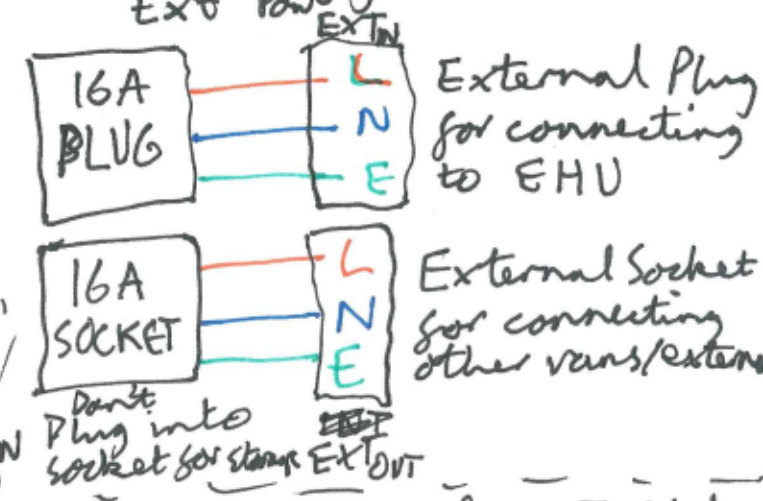 Ext Power
EXT IN
16A
PLUG
L
N
E
External Plug
for connecting
to EHU
16A
SOCKET
L
N
E
External Socket
for connecting
other vans/extern
Don't
Plug into
socket for storage
EXT OUT
N